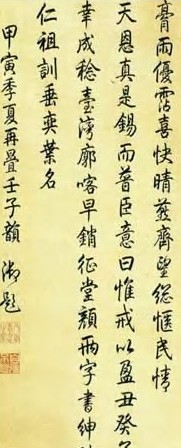 膏雨優霑喜快晴慈齊望總愜民情
天恩真是錫而普臣意曰惟戒以盈丑癸
幸成稔臺灣廓喀早銷征堂顏兩字書紳
仁祖訓垂奕葉名
甲寅季夏再疊壬子韻 御題